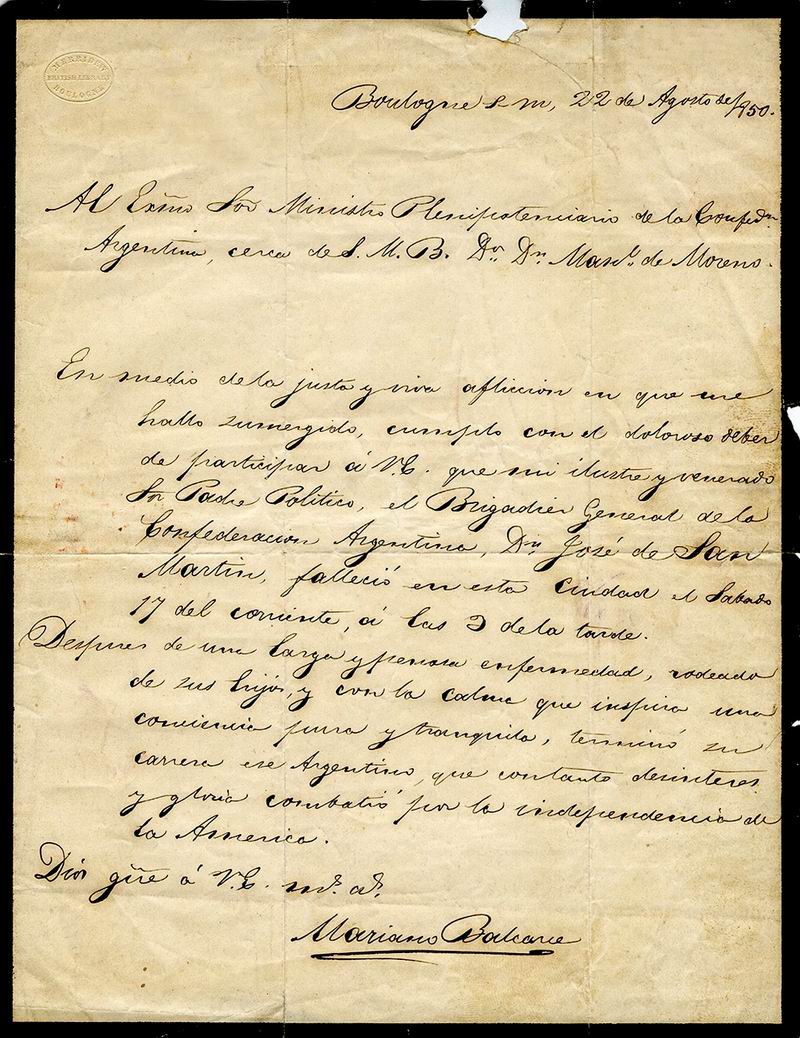 MERRIDEW
BRITISH LIBRARY
BOULOGNE
Boulogne s m, 22 de Agosto de 1850.
Al Exmo Sor Ministro Plenipotenciario de la Confedn
Argentina, cerca de S. M. B. Dor Dn Manl de Moreno.
En medio de la justa y viva afliccion en que me
hallo zumergido, cumplo con el doloroso deber
de participar á V.E. que mi ilustre y venerado
Sr Padre Politico, el Brigadier General de la
Confederacion Argentina, Dn José de San
Martin, falleció en esta Ciudad el Sabado
17 del corriente, á las 3 de la tarde.
Despues de una larga y penosa enfermedad, rodeado
de sus hijos, y con la calma que inspira una
conciencia pura y tranquila, terminó su
carrera ese Argentino, que con tanto desinteres
y gloria combatió por la independencia de
la America.
Dios gue á V.E. ms as.
Mariano Balcarce